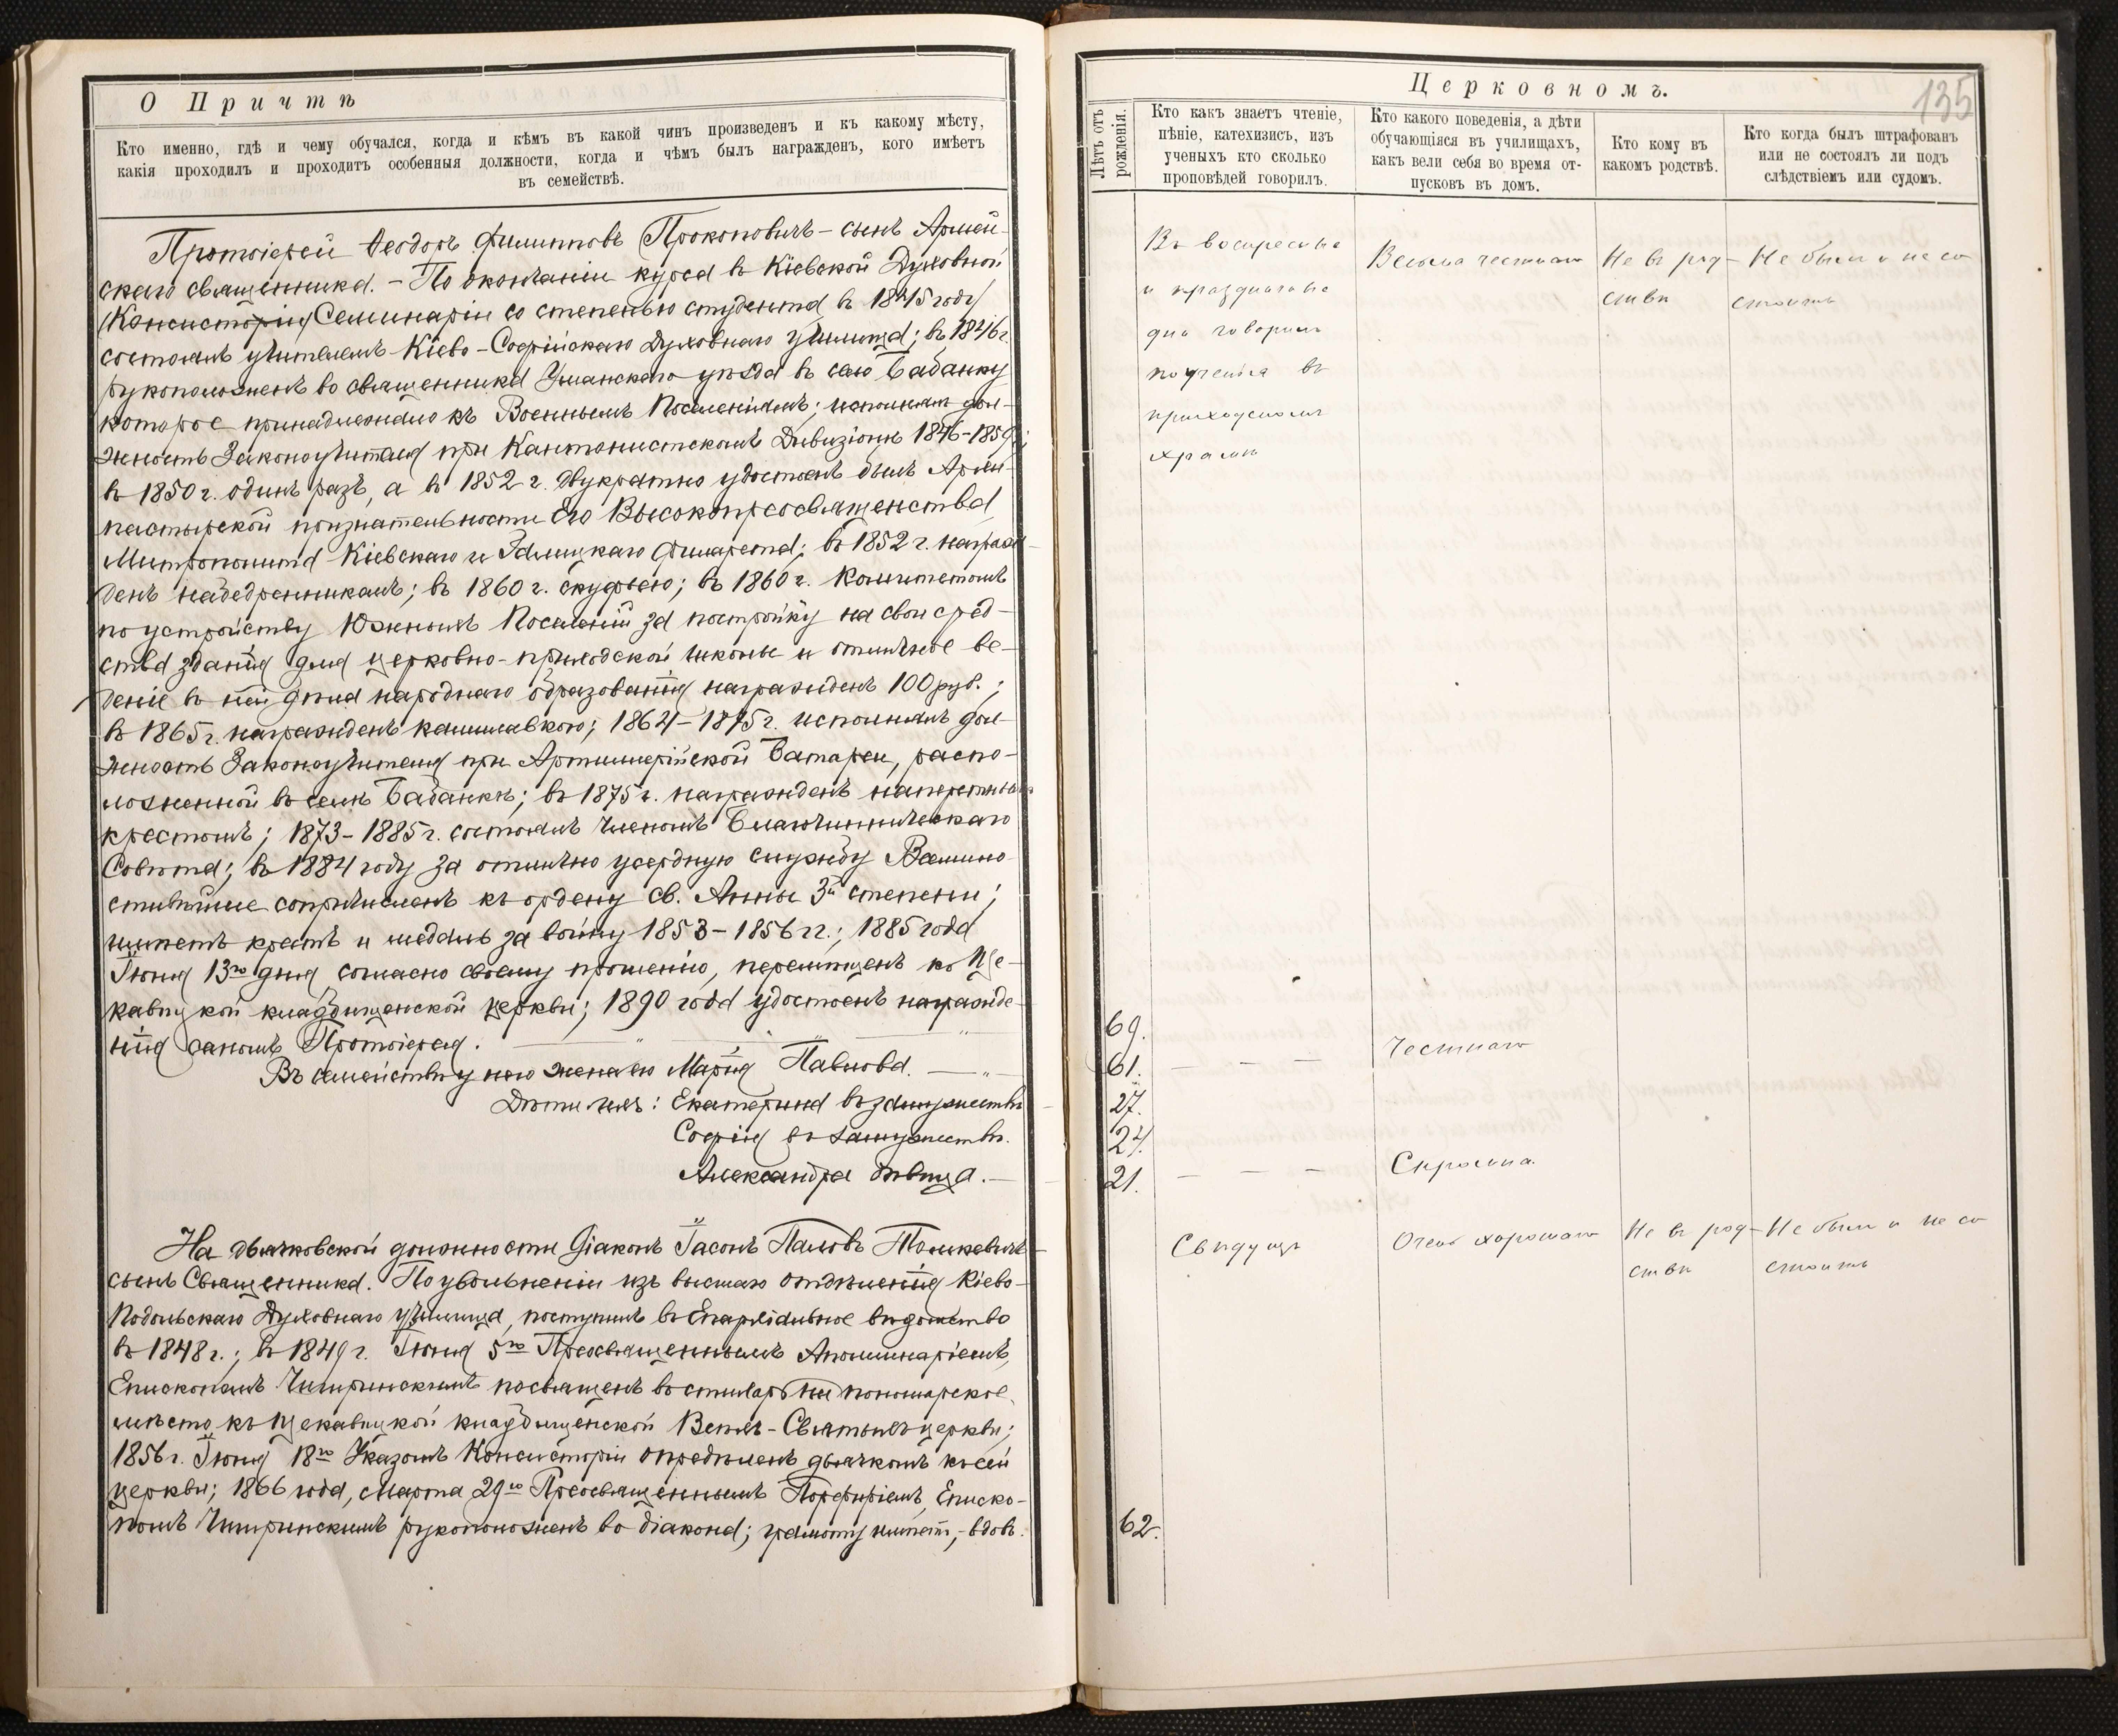 О Причтѣ
Кто именно, гдѣ и чему обучался, когда и кѣмъ въ какой чинъ произведенъ и къ какому мѣсту,
какія проходилъ и проходитъ особенныя должности, когда и чѣмъ былъ награжденъ, кого имѣетъ
въ семействѣ.
Протоіерей Ѳеодоръ Филипповъ Прокоповичъ – сынъ Армей-
скаго священника. – По окончаніи курса въ Кіевской Духовной
(Консисторіи) Семинаріи со степенью студента въ 1845 году
состоялъ учителемъ Кіево-Софійскаго Духовнаго училища; въ 1846 г.
рукоположенъ во священника Уманскаго уѣзда въ село Бабанку
которое принадлежало къ Военнымъ Поселеніямъ; исполнялъ дол-
жность Законоучителя при Кантонистскомъ Дивизіонѣ 1846-1859;
въ 1850 г. одинъ разъ, а въ 1852 г. двукратно удостоенъ былъ Архи-
пастырской признательности Его Высокопреосвященства
Митрополита Кіевскаго и Галицкаго Филарета; въ 1852 г. награж-
денъ набедренникамъ; въ 1860 г. скуфьею; въ 1860 г. Комитетомъ
по устройству Южныхъ Поселеній за постройку на свои сред-
ства зданія для церковно-приходской школы и отличное ве-
деніе въ ней дѣла народнаго образованія награжденъ 100 руб.;
въ 1865 г. награжденъ камилавкою; 1864-1875 г. исполнялъ дол-
жность Законоучителя при Артиллерійской Батареи, распо-
ложенной въ селѣ Бабанкѣ; въ 1875 г. награжденъ наперснымъ
крестомъ; 1873-1885 г. состоялъ членомъ Благочинническаго
Совѣта; въ 1884 году за отлично усердную службу Всемило-
стивѣйше сопричисленъ къ ордену св. Анны 3й степени;
имѣетъ крестъ и медаль за войну 1853-1856 гг.; 1885 года
Іюня 13го дня согласно своему прошенію, перемѣщенъ къ Ще-
кавицкой кладбищенской церкви; 1890 года удостоенъ награжде-
нія саномъ Протоіерея.
Въ семействѣ у него жена его Марія Павлова.
Дѣти ихъ: Екатерина въ замужествѣ
Софія въ замужествѣ.
Александра дѣвица.
На дьячковской должности Діаконъ Іасонъ Павловъ Томкевичъ
сынъ Священника. По увольненіи изъ высшаго отдѣленія Кіево-
Подольскаго Духовнаго училища, поступилъ въ Епархіальное вѣдомство
въ 1848 г.; въ 1849 г. Іюня 5го Преосвященнымъ Аполлинаріемъ,
Епископомъ Чигринскимъ посвященъ въ стихарь на пономарское
мѣсто къ Щекавицкой кладбищенской Всѣхъ-Святыхъ церкви;
1856 г. Іюня 18го Указомъ Консисторіи опредѣленъ дьячкомъ къ сей
церкви; 1866 года, Марта 29го Преосвященнымъ Порфиріемъ, Еписко-
помъ Чигринскимъ рукоположенъ во діакона; грамоту имѣетъ, – вдовъ.
Церковномъ.
135
Лѣтъ отъ
рожденія.
Кто какъ знаетъ чтеніе,
пѣніе, катехизисъ, изъ
ученыхъ кто сколько
проповѣдей говорилъ.
Кто какого поведенія, а дѣти
обучающіяся въ училищахъ,
какъ вели себя во время от-
пусковъ въ домъ.
Кто кому въ
какомъ родствѣ.
Кто когда былъ штрафованъ
или не состоялъ ли подъ
слѣдствіемъ или судомъ.
Въ воскресные
и праздничные
дни говорилъ
поученія въ
приходскомъ
храмѣ
Весьма честнаго
Не въ род-
ствѣ
Не былъ и не со
стоитъ
69.
61. Честнаго
27.
24.
21. Скромна.
Свѣдущъ
Очень хорошаго
Не въ род-
ствѣ
Не былъ и не со
стоитъ
62.